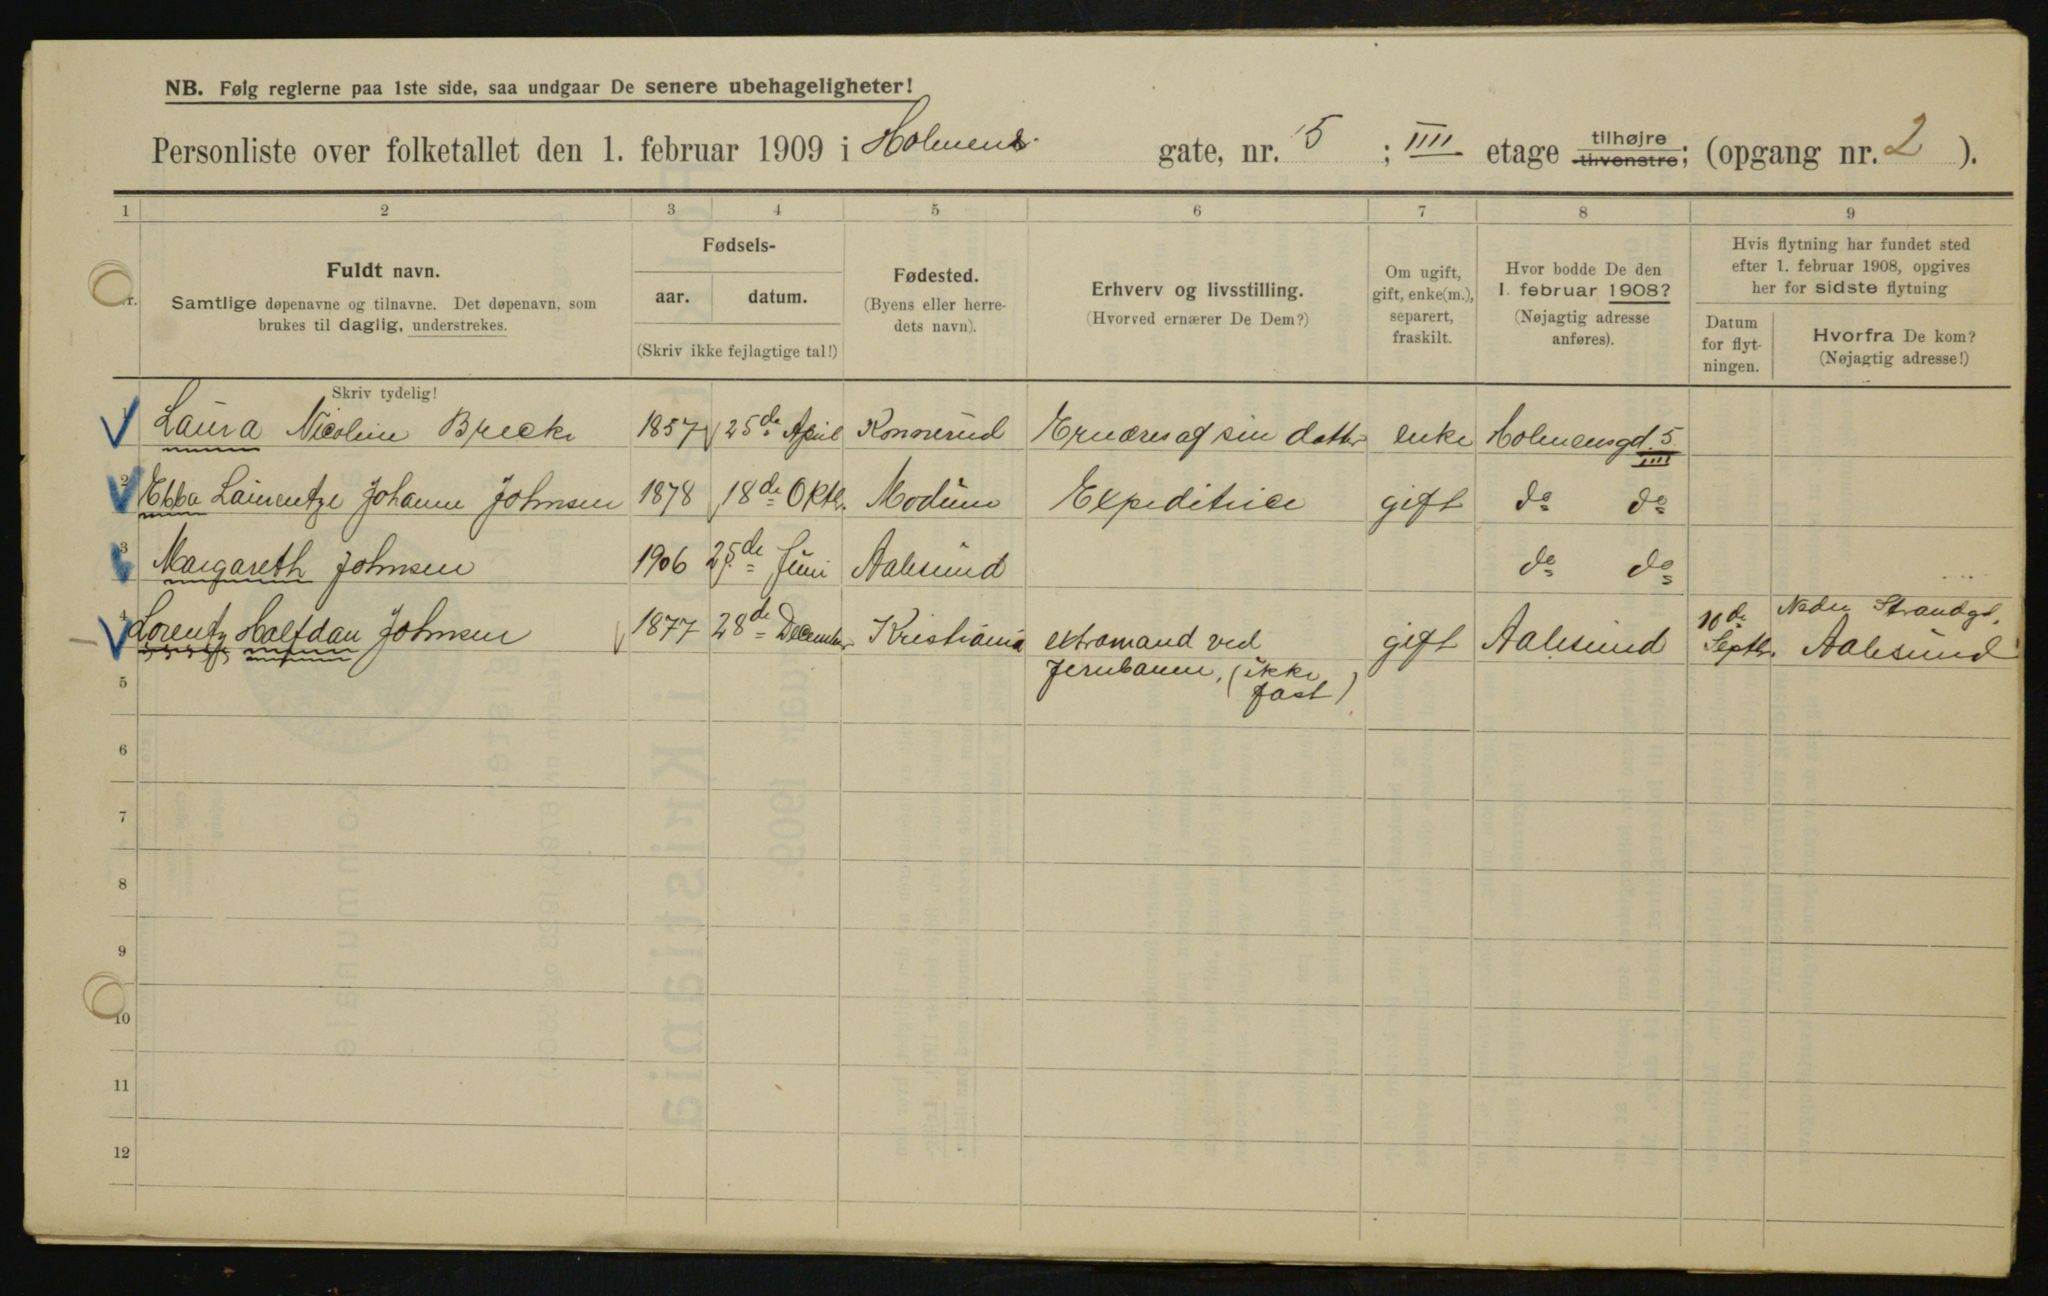 NB. Følg reglerne paa 1ste side, saa undgaar De senere ubehageligheter!
Personliste over folketallet den 1. februar 1909 i Holmens gate, nr. 5 ; IIII etage tilhøjre tilvenstre; (opgang nr. 2 ).
1 2 3 4 5 6 7 8 9
Nr.
Fuldt navn.
Samtlige døpenavne og tilnavne. Det døpenavn, som
brukes til daglig, understrekes.
Fødsels-
aar. datum.
(Skriv ikke fejlagtige tal!)
Fødested.
(Byens eller herre-
dets navn).
Erhverv og livsstilling.
(Hvorved ernærer De Dem?)
Om ugift,
gift, enke(m.),
separert,
fraskilt.
Hvor bodde De den
1. februar 1908?
(Nøjagtig adresse
anføres).
Hvis flytning har fundet sted
efter 1. februar 1908, opgives
her for sidste flytning
Datum
for flyt-
ningen.
Hvorfra De kom?
(Nøjagtig adresse!)
Skriv tydelig!
1 Laura Nicoline Brecke 1857 25de April Konnerud Ernæres af sin datter enke Holmensgd 5 IIII
2 Ebba Laurentze Johanne Johnsen 1878 18de Oktbr. Modum Expeditrice gift do do
3 Margareth Johnsen 1906 25de Juni Aalesund do do
4 Lorentz Halfdan Johnsen 1877 28de December Kristiania extramand ved gift Aalesund 10de Septbr. Nedre Strandgd.
Jernbanen, (ikke fast) Aalesund
5
6
7
8
9
10
11
12